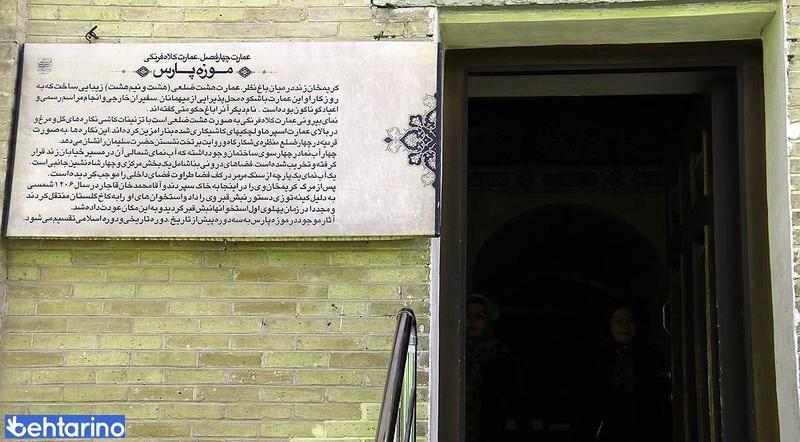 عمارت چهارفصل.عمارت کلاه فرنگی
موزه پارس
کریمخان زند در میان باغ نظر، عمارت هشت ضلعی (هشت و نیم هشت) زیبایی ساخت که به
روزگار او این عمارت باشکوه محل پذیرایی از میهمانان، سفیران خارجی و انجام مراسم رسمی و
اعیاد گوناگون بوده است. نام دیگر آنرا باغ حکومتی گفته اند.
نمای بیرونی عمارت کلاه فرنگی به صورت هشت ضلعی است با تزئینات کاشی نگاره های گل و مرغ و
در بالای عمارت اسپرها و لچکیهای کاشیکاری شده بنا را مزین کرده اند. این نگاره ها، به صورت
قرینه در چهار ضلع منظره ی شکارگاه و روایت بر تخت نشستن حضرت سلیمان را نشان می دهد.
چهار آب نما در چهار سوی ساختمان وجود داشته که آب نمای شمالی آن در مسیر خیابان زند قرار
گرفته و تخریب شده است. فضاهای درونی بنا شامل یک بخش مرکزی و چهار شاه نشین جانبی است.
یک آب نمای یک پارچه از سنگ مرمر در کف فضا طراوت فضای داخلی را موجب گردیده است.
پس از مرگ کریمخان وی را در اینجا به خاک سپردند و آقا محمدخان قاجار در سال ۱۲۰۶ شمسی
به دلیل کینه توزی دستور نبش قبر وی را داد و استخوان های او را به کاخ گلستان منتقل کردند
و مجددا در زمان پهلوی اول استخوانهایش نبش قبر گردید و به این مکان عودت داده شد.
آثار موجود در موزه پارس به سه دوره پیش از تاریخ، دوره تاریخی و دوره اسلامی تقسیم می شود.
behtarino